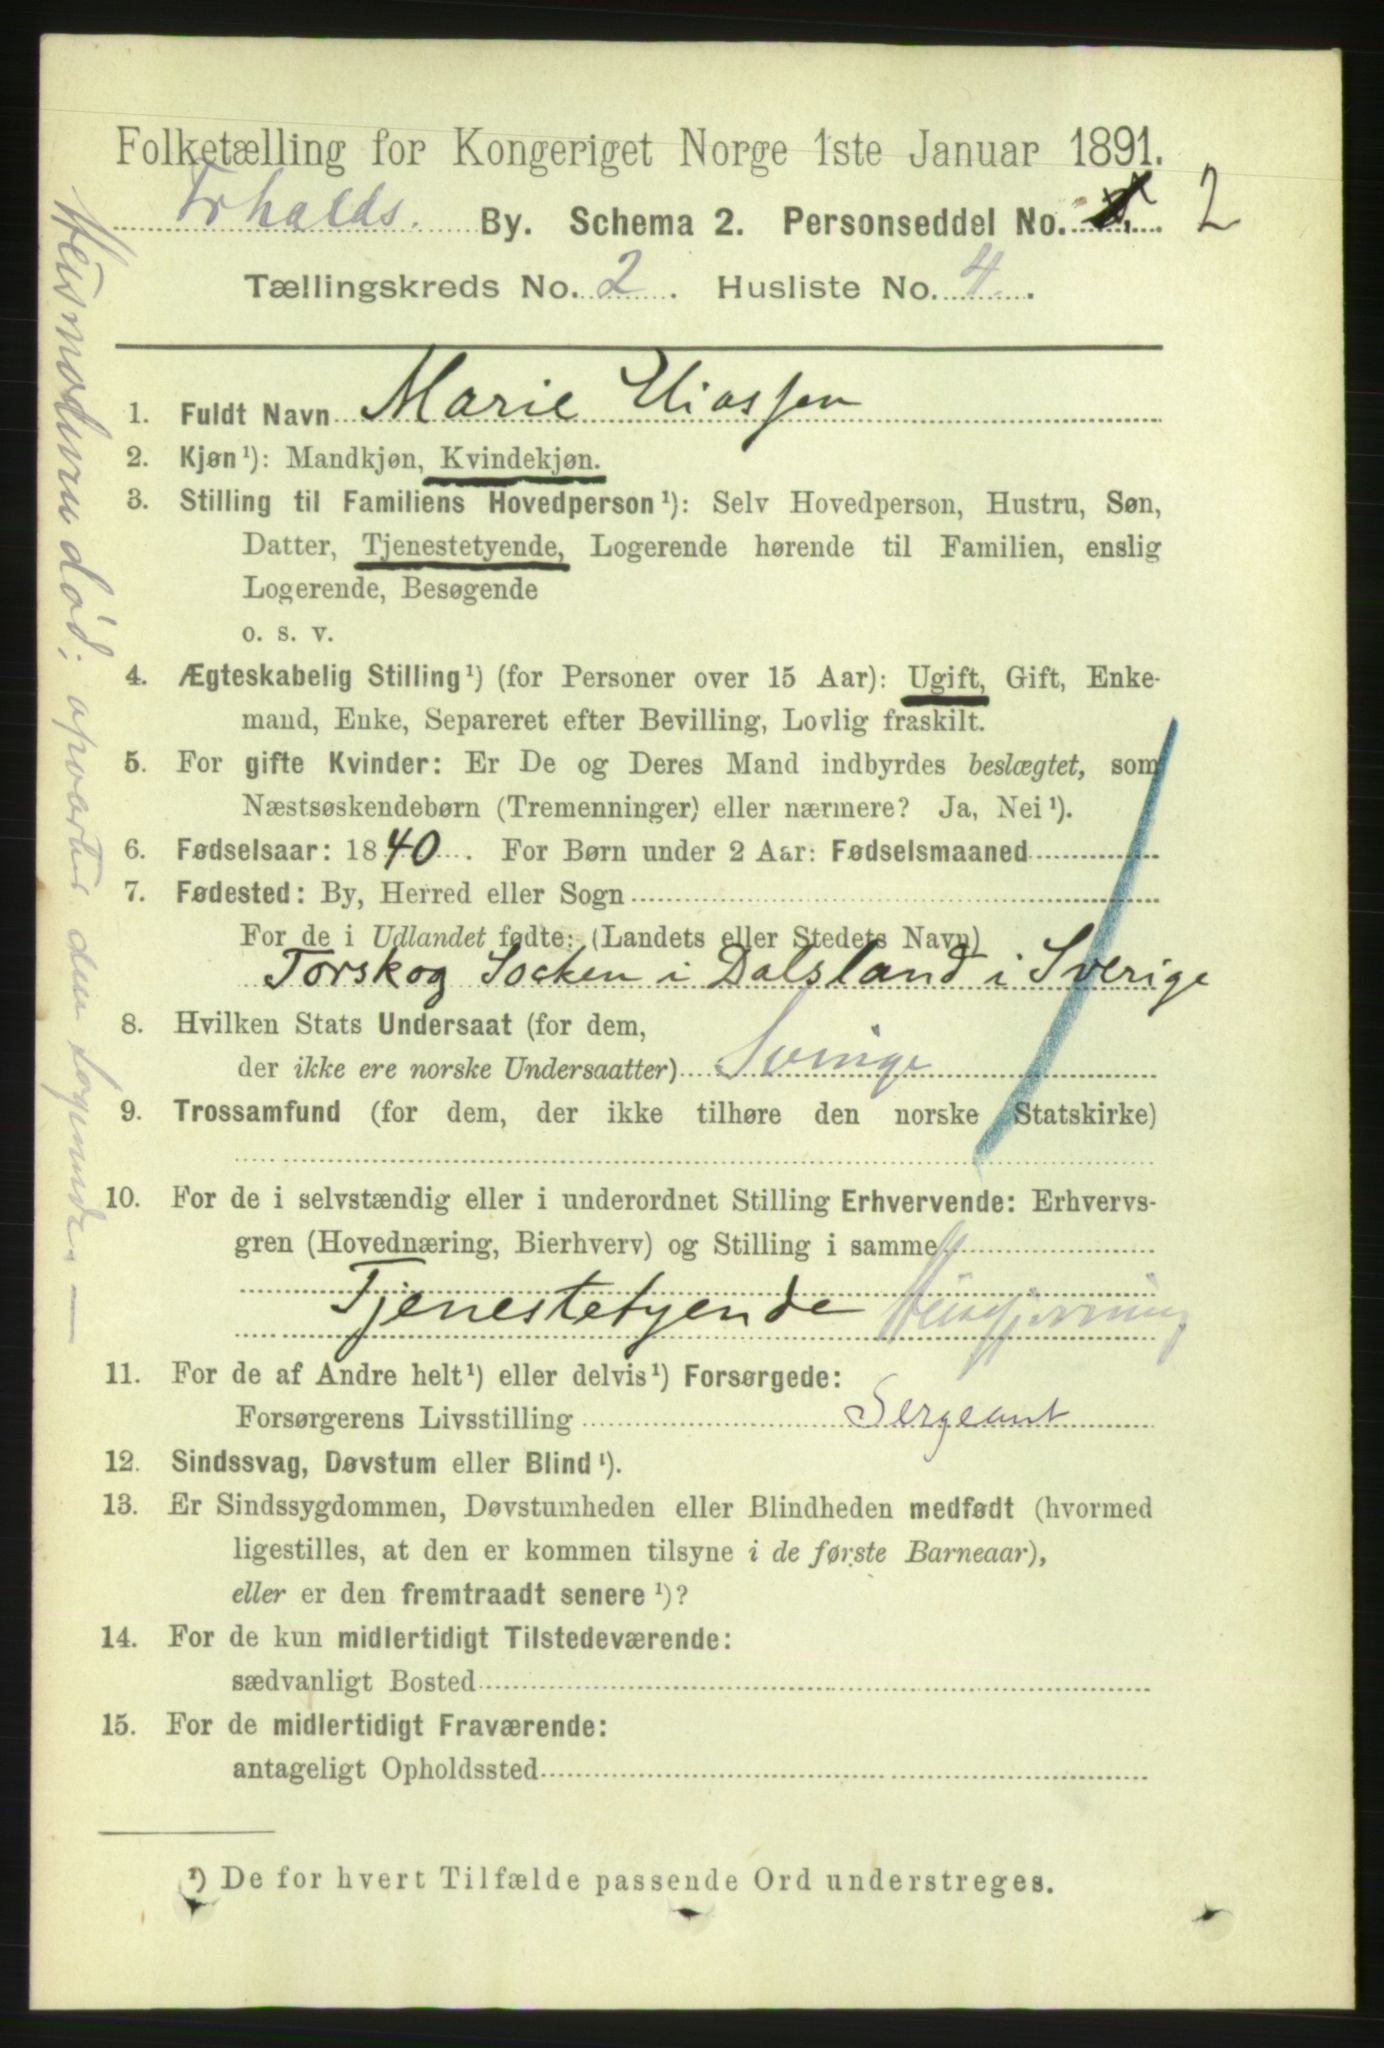 Folketælling for Kongeriget Norge 1ste Januar 1891.
Frhalds. By. Schema 2. Personseddel No. 2
Tællingskreds No. 2. Husliste No. 4.
1. Fuldt Navn Marie Eliassen
2. Kjøn¹): Mandkjøn, Kvindekjøn.
3. Stilling til Familiens Hovedperson¹): Selv Hovedperson, Hustru, Søn,
Datter, Tjenestetyende, Logerende hørende til Familien, enslig
Logerende, Besøgende
o. s. v.
4. Ægteskabelig Stilling¹) (for Personer over 15 Aar): Ugift, Gift, Enke-
mand, Enke, Separeret efter Bevilling, Lovlig fraskilt.
5. For gifte Kvinder: Er De og Deres Mand indbyrdes beslægtet, som
Næstsøskendebørn (Tremenninger) eller nærmere? Ja, Nei¹).
6. Fødselsaar: 1840. For Børn under 2 Aar: Fødselsmaaned
7. Fødested: By, Herred eller Sogn
For de i Udlandet fødte: (Landets eller Stedets Navn)
Torskog Socken i Dalsland i Sverige
8. Hvilken Stats Undersaat (for dem,
der ikke ere norske Undersaatter) Sverige
9. Trossamfund (for dem, der ikke tilhøre den norske Statskirke)
10. For de i selvstændig eller i underordnet Stilling Erhvervende: Erhvervs-
gren (Hovednæring, Bierhverv) og Stilling i samme
Tjenestetyende Husgjerning
11. For de af Andre helt¹) eller delvis¹) Forsørgede:
Forsørgerens Livsstilling Sergeant
12. Sindssvag, Døvstum eller Blind¹).
13. Er Sindssygdommen, Døvstumheden eller Blindheden medfødt (hvormed
ligestilles, at den er kommen tilsyne i de første Barneaar),
eller er den fremtraadt senere¹)?
14. For de kun midlertidigt Tilstedeværende:
sædvanligt Bosted
15. For de midlertidigt Fraværende:
antageligt Opholdssted
¹) De for hvert Tilfælde passende Ord understreges.
Husmoderen død; opvarter den Logerende —